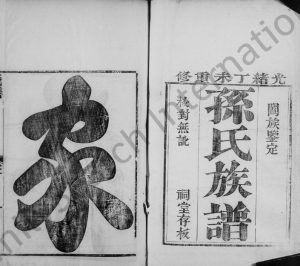 光緒丁未重修
闔族鑒定
孫氏族譜
校對無訛
祠堂存板